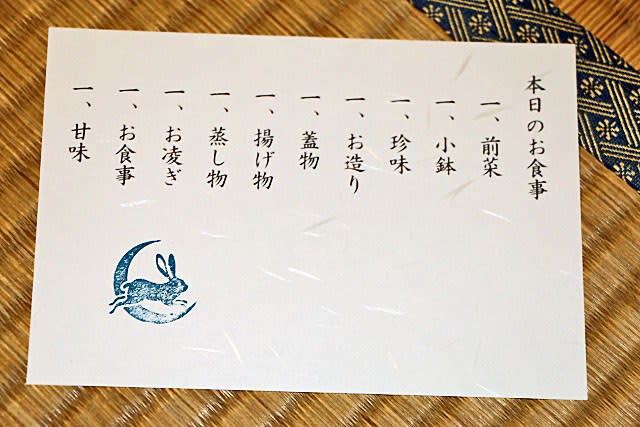 本日のお食事
一、前菜
一、小鉢
一、珍味
一、お造り
一、蓋物
一、揚げ物
一、蒸し物
一、お凌ぎ
一、お食事
一、甘味